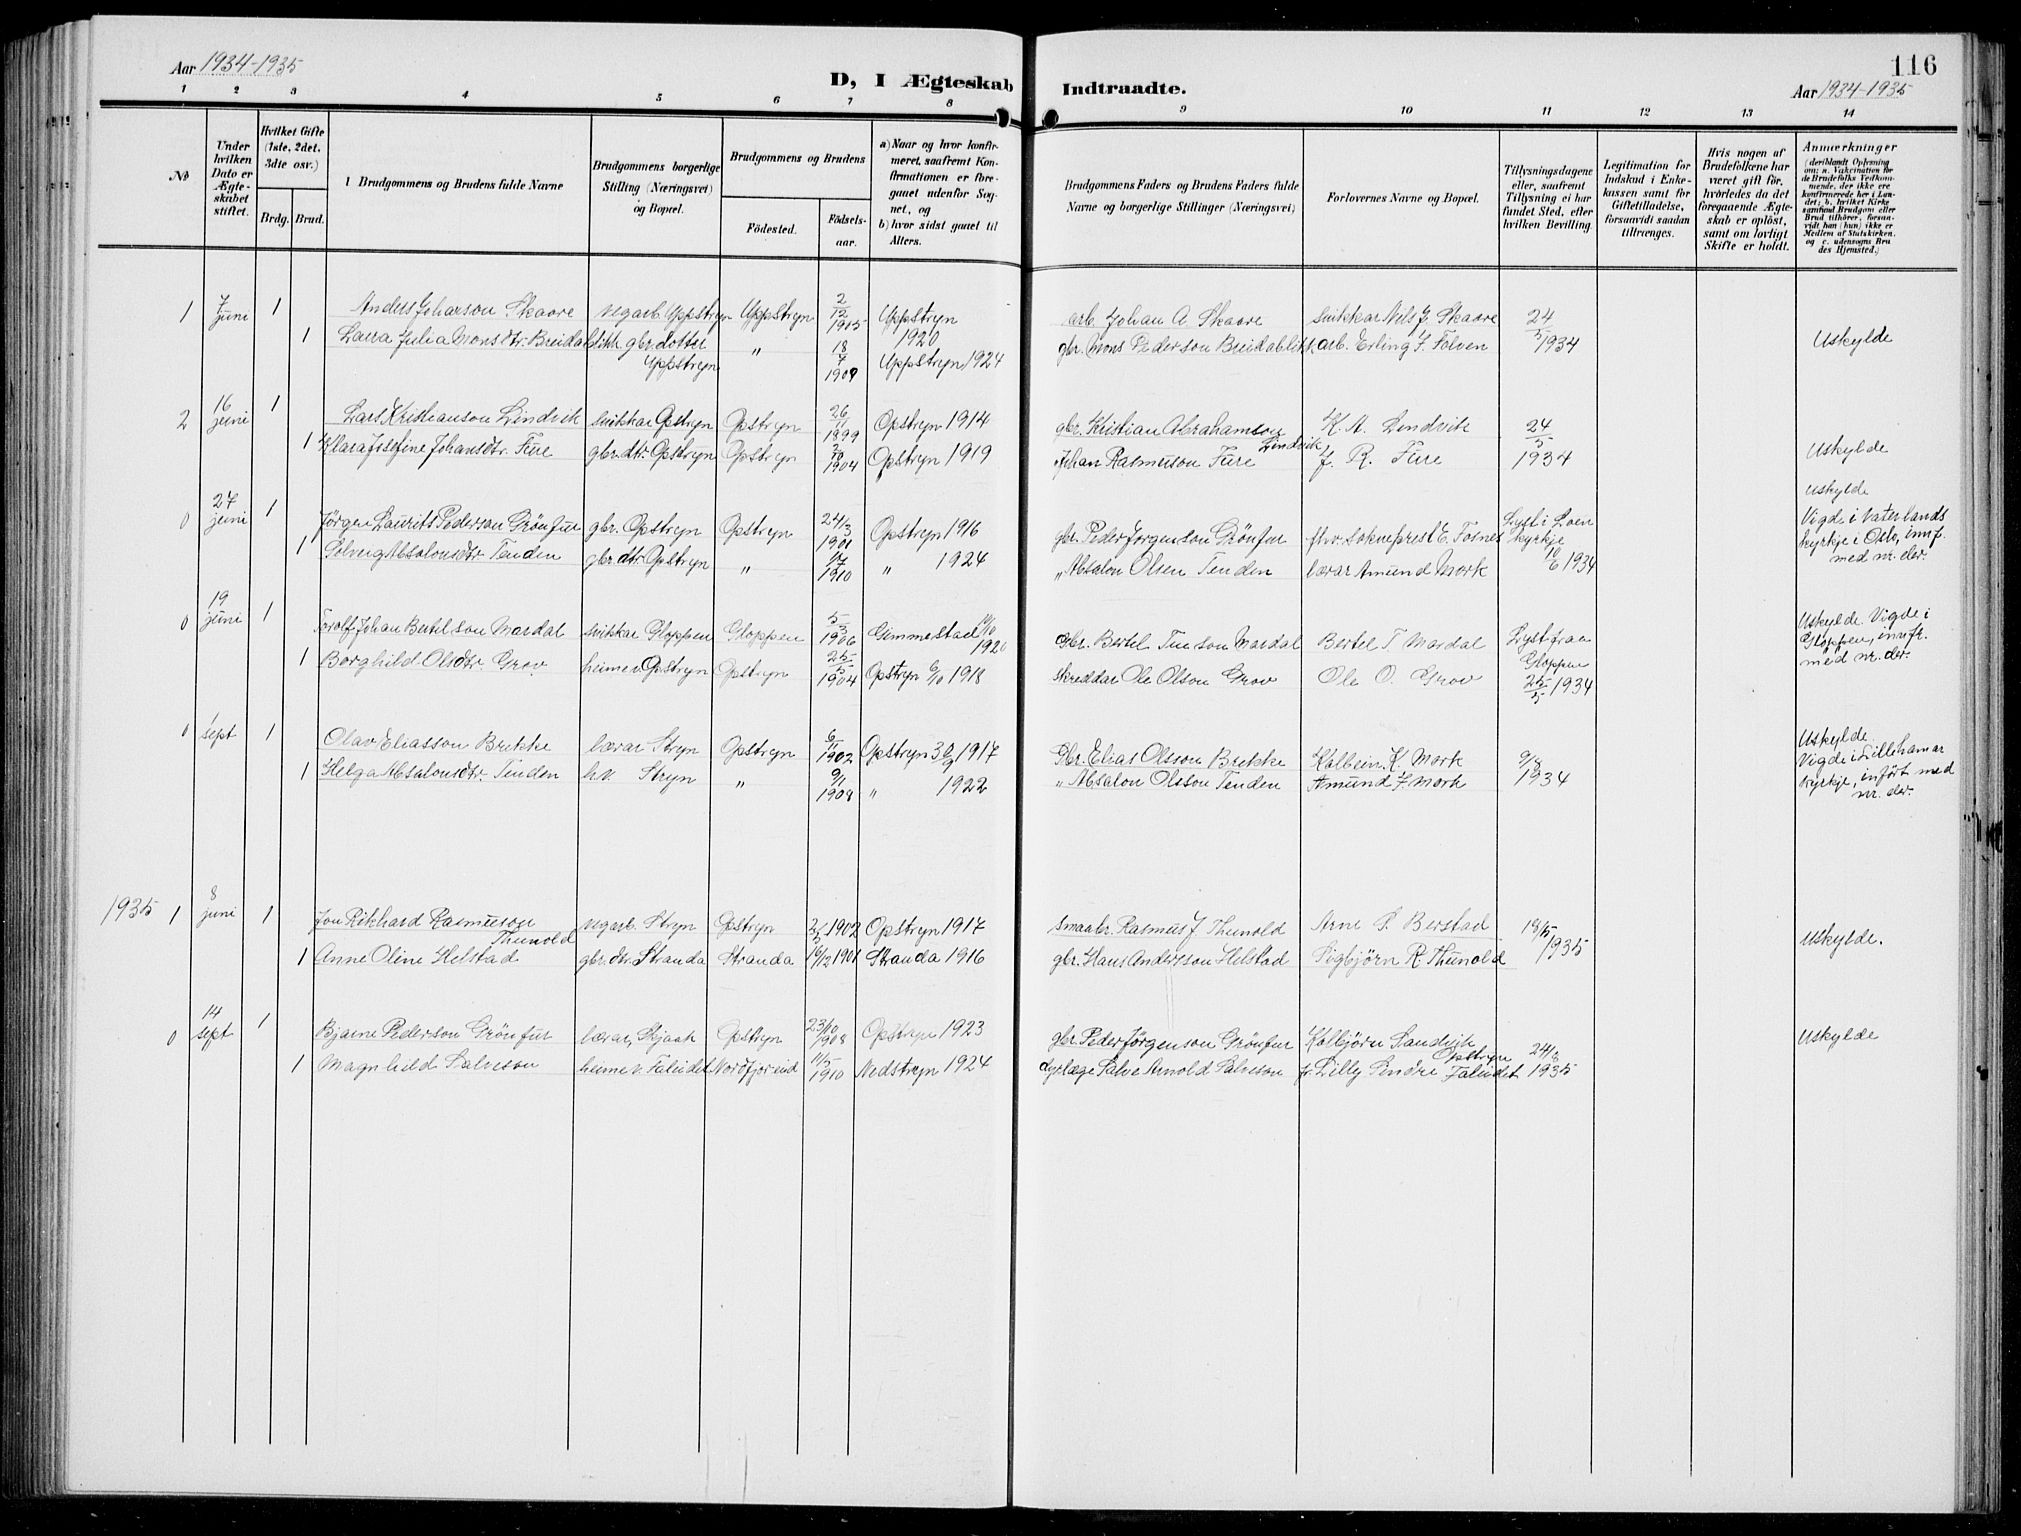 Aar 1934-1935
D, I Ægteskab Indtraadte.
116
Aar 1934-1935
1 2 3 4 5 6 7 8 9 10 11 12 13 14
No
Under hvilken Dato er Ægteskabet stiftet.
Hvilket Gifte (1ste, 2det, 3die osv.)
Brdg. Brud.
Brudgommens og Brudens fulde Navne
Brudgommens borgerlige Stilling (Næringsvei) og Bopæl.
Brudgommens og Brudens
Fødested.
Fødselsaar.
a) Naar og hvor konfirmeret, saafremt Konfirmationen er foregaaet udenfor Sognet, og
b) hvor sidst gaaet til Alters.
Brudgommens Faders og Brudens Faders fulde Navne og borgerlige Stillinger (Næringsvei)
Forlovernes Navne og Bopæl.
Tillysningsdagene eller, saafremt Tillysning ei har fundet Sted, efter hvilken Bevilling.
Legitimation for Indskud i Enkekassen samt for Giftetilladelse, forsaavidt saadan tiltrænges.
Hvis nogen af Brudefolkene har været gift før, hvorledes da det foregaaende Ægteskab er opløst, samt om lovligt Skifte er holdt.
Anmærkninger
(deriblandt Oplysning om: a. Vaccination for de Brudefolks Vedkommende, der ikke ere konfirmerede her i Landet; b. hvilket Kirkesamfund Brudgom eller Brud tilhører, forsaavidt han (hun) ikke er Medlem af Statskirken. og c. udensogns Brudes Hjemsted.)
1 7 juni 1 Anders Johanson Skaare vegarb. Uppstryn Uppstryn 2/12 1905 Uppstryn 1920 arb. Johan A Skaare snikkar Nels J. Skaare 24/5 1934 Uskylde
1 Laura Julia Monsdtr. Breidablikk gbr. dotter Uppstryn " 18/7 1909 Uppstryn 1924 gbr. Mons Pederson Breidablikk arb. Erling J. Folven
2 16 juni 1 Lars Kristianson Lindvik snikkar Opstryn Opstryn 26/11 1899 Opstryn 1914 gbr. Kristian Abrahamson Lindvik K. A. Lindvik 24/5 1934 Uskylde
1 Klara Josefine Johansdtr. Fure gbr. dtr. Opstryn Opstryn 1904 Opstryn 1919 Johan Rasmuson Fure J. R. Fure
0 27 juni 1 Jørgen Laurits Pederson Grönfur gbr. Opstryn Opstryn 24/3 1901 Opstryn 1916 gbr. Peder Jørgenson Grönfur fhv. sokneprest E. Tosnes Lyst i Loen kyrkje 10/6 1934 Uskylde Vigde i Vaterlands kyrkje i Oslo, innf. med nr. der.
1 Solveig Absalonsdtr. Tenden gbr. dtr. Opstryn " 1910 " 1924 " Absalon Olsen Tenden lærar Amund Mork
0 19 juni 1 Torolf Johan Bertelson Mardal snikkar Gloppen Gloppen 5/3 1906 Gimmestad 1920 Gbr. Bertel Tenson Mardal Bertel T Mardal Lyst fraa Gloppen 25/5 1934 Uskylde. Vigde i Gloppen, innfr. med nr. der.
1 Borghild Olsdtr. Grov heimev. Opstryn Opstryn 25/5 1904 Opstryn 6/10 1918 Skreddar Ole Olson Grov Ole O. Grov
0 1 sept 1 Olav Eliasson Brekke lærar Stryn Opstryn 6/11 1902 Opstryn 30/9 1917 Gbr. Elias Olsson Brekke Kolbein K. Mork 9/8 1934 Uskylde. Vigde i Lillehamar kyrkje, innført med nr. der.
1 Helga Absalonsdtr. Tenden h.v. Stryn " 9/1 1908 " 1922 " Absalon Olsson Tenden Amund J. Mork
1935 1 8 juni 1 Jon Rikhard Rasmusson Thunold vegarb. Stryn Opstryn 2/5 1902 Opstryn 1917 Smaabr. Rasmus J Thunold Arne P. Berstad 18/5 1935 Uskylde.
1 Anne Oline Helstad gbr. dtr. Stranda Stranda 16/12 1901 Stranda 1916 gbr. Hans Andersson Helstad Sigbjørn R. Thunold
0 14 sept 1 Bjarne Pederson Grönfur lærar, Skjaak Opstryn 23/10 1908 Opstryn 1923 gbr. Peder Jørgenson Grönfur Kolbjörn Sandvik Opstryn 24/8 1935 Uskylde
1 Magnhild Salveson heime v. Faleidet Nordfjoreid 11/5 1910 Nedstryn 1924 dyrlæge Salve Arnold Salveson fr. Lilly Sendre Faleidet